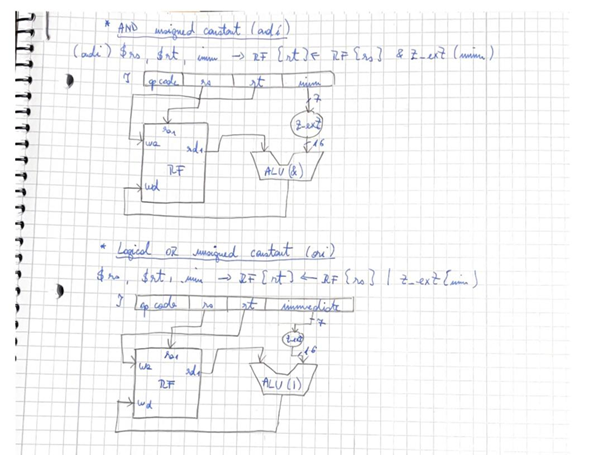 * AND unsigned constant (adi)
(adi) $rs, $rt, imm → RF[rt] ← RF[rs] & Z_ext(imm)
I op code rs rt imm
7
Z_ext
16
ra1
wa
rd1
RF
ALU(&)
wd
* Logical OR unsigned constant (ori)
$rs, $rt, imm → RF[rt] ← RF[rs] | Z_ext[imm)
I op code rs rt immediate
7
Z_ext
16
ra1
wa
rd1
RF
ALU(|)
wd